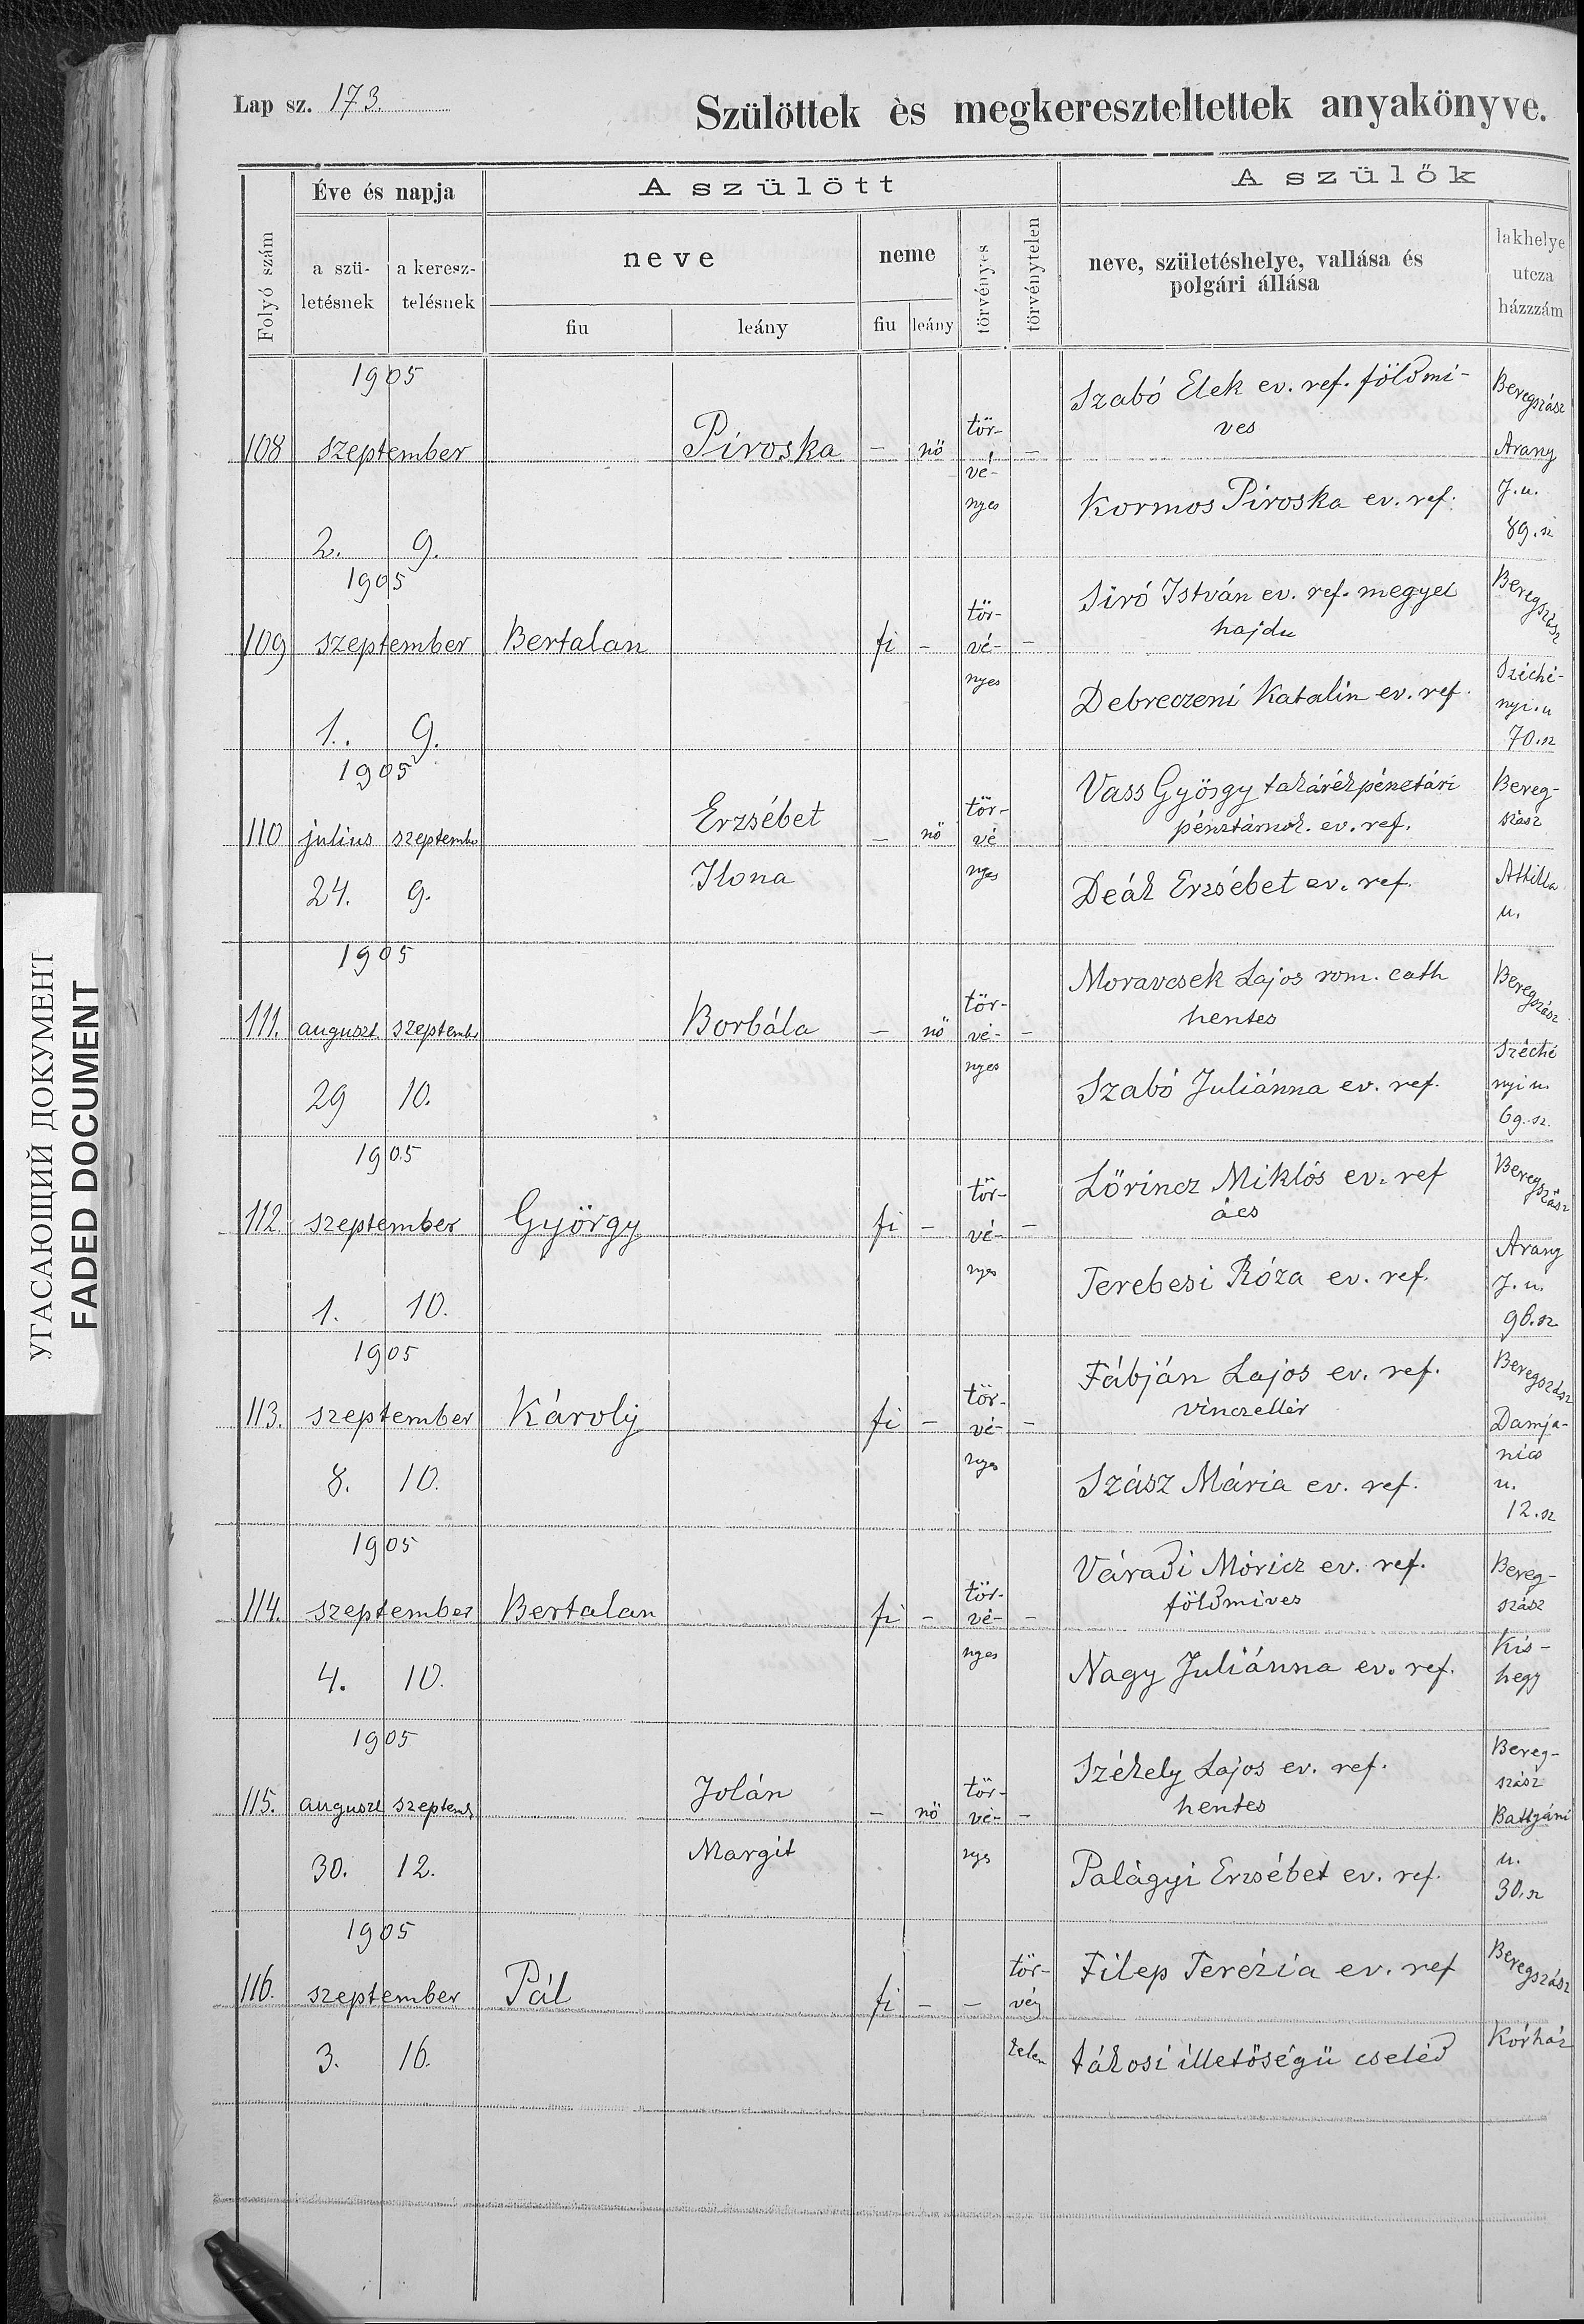 Lap sz. 173.
Szülöttek és megkereszteltettek anyakönyve.
Folyó szám
Éve és napja
a szü-
letésnek
a keresz-
telésnek
A szülött
neve
fiu
leány
neme
fiu
leány
törvényes
törvénytelen
A szülők
neve, születéshelye, vallása és
polgári állása
lakhelye
utcza
házzzám
1905
108 szeptember Piroska — nő tör- —
vé-
nyes
2. 9.
Szabó Elek ev. ref. földmi-
ves
Kormos Piroska ev. ref.
Beregszász
Arany
J. u.
89. sz
1905
109 szeptember Bertalan fi — tör- —
vé-
nyes
1. 9.
Siró István ev. ref. megyei
hajdu
Debreczeni Katalin ev. ref.
Beregszász
Széché-
nyi. u
70. sz
1905
110 julius szeptember Erzsébet — nő tör-
vé
nyes
24. 9. Ilona
Vass György takarékpénztári
pénztárnok. ev. ref.
Deák Erzsébet ev. ref.
Bereg-
szász
Attilla
u.
1905
111. auguszt. szeptemb Borbála — nő tör- —
vé-
nyes
29 10.
Moravcsek Lajos rom. cath
hentes
Szabó Juliánna ev. ref.
Beregszász
Széché
nyi u.
69. sz.
1905
112. szeptember György fi — tör- —
vé-
nyes
1. 10.
Lőrincz Miklós ev. ref
ács
Terebesi Róza ev. ref.
Beregszász
Arany
J. u.
96. sz
1905
113. szeptember Károly fi — tör- —
vé-
nyes
8. 10.
Fábján Lajos ev. ref.
vinczellér
Szász Mária ev. ref.
Beregszász
Damja-
nics
u.
12. sz
1905
114. szeptember Bertalan fi — tör- —
vé-
nyes
4. 10.
Váradi Móricz ev. ref.
földmives
Nagy Juliánna ev. ref.
Bereg-
szász
Kis-
hegy
1905
115. auguszt szeptemb Jolán — nő tör- —
vé-
nyes
30. 12. Margit
Székely Lajos ev. ref.
hentes
Palágyi Erzsébet ev. ref.
Bereg-
szász
Battyáni
u.
30. sz
1905
116. szeptember Pál fi — — tör-
vény
telen
3. 16.
Filep Terézia ev. ref
tákosi illetőségü cseléd
Beregszász
Kórház
УГАСАЮЩИЙ ДОКУМЕНТ
FADED DOCUMENT